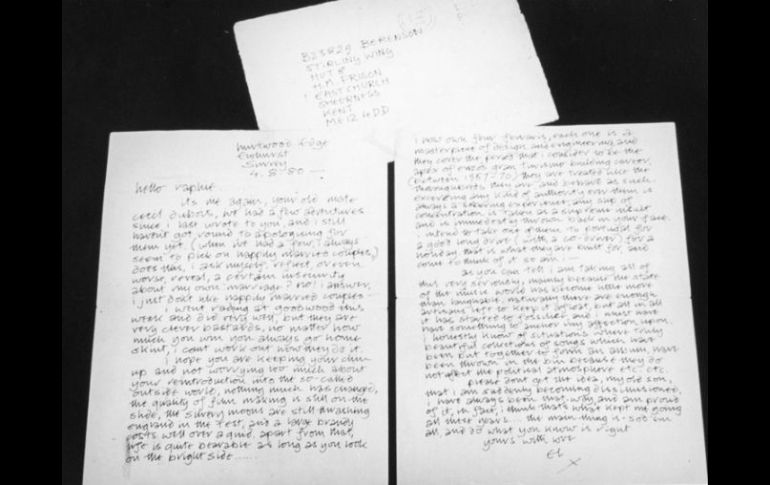 B23829 BERENSON
STIRLING WING
HUT 8
H.M. PRISON
EASTCHURCH
SHEERNESS
KENT
ME12 4DD
hurtwood edge
Ewhurst
Surrey
4.8.80
hello raphie.
its me again, your old mate
cecil dubois, we had a few adventures
since i last wrote to you, and i still
havent got round to apologising for
them yet. (when ive had a few, i always
seem to pick on happily married couples,)
does this, i ask myself, reflect, or even
worse, reveal, a certain insecurity
about my own marriage? no! i answer,
i just dont like happily married couples
i went racing at goodwood this
week and did very well, but they are
very clever bastards, no matter how
much you win you always go home
skint, i cant work out how they do it.
i hope you are keeping your chin
up and not worrying too much about
your reintroduction into the so called
outside world, nothing much has changed,
the quality of film making is still on the
slide, the are still
england in the test, and a large brandy
costs well over a quid, apart from that
life is quite bearable as long as you look
on the bright side......
i now own four ferraris, each one is a
masterpiece of design and engineering and
they cover the period that i consider to be the
apex of enzos gran turismo building career,
(between 1957-70) they are treated like the
thoroughbreds they are, and behave as such.
exceeding any kind of authority over them is
always a sobering experience, any slip of
concentration is taken as a supreme insult
and is immediately thrown back in your face.
i intend to take one of them to portugal for
a good long drive (with a co-driver) for a
holiday, that is what they are built for, and
come to think of it so am i
as you can tell i am taking all of
this very seriously, mainly because the state
of the music world has become little more
than laughable, naturally there are enough
artisans left to keep it afloat, but all in all
it has started to fossilise and i must have
have something to anchor my affection upon.
i honestly know of situations where truly
beautiful collections of songs which have
been put together to form an album, have
been thrown in the bin because they do
not reflect the political atmosphere etc. etc.
please dont get the idea, my old son,
that i am suddenly becoming disillusioned,
i have always been that way and am proud
of it, in fact, i think thats what kept me going
all these years... the main thing is - sod 'em
all, and do what you know is right
yours with love
El
x